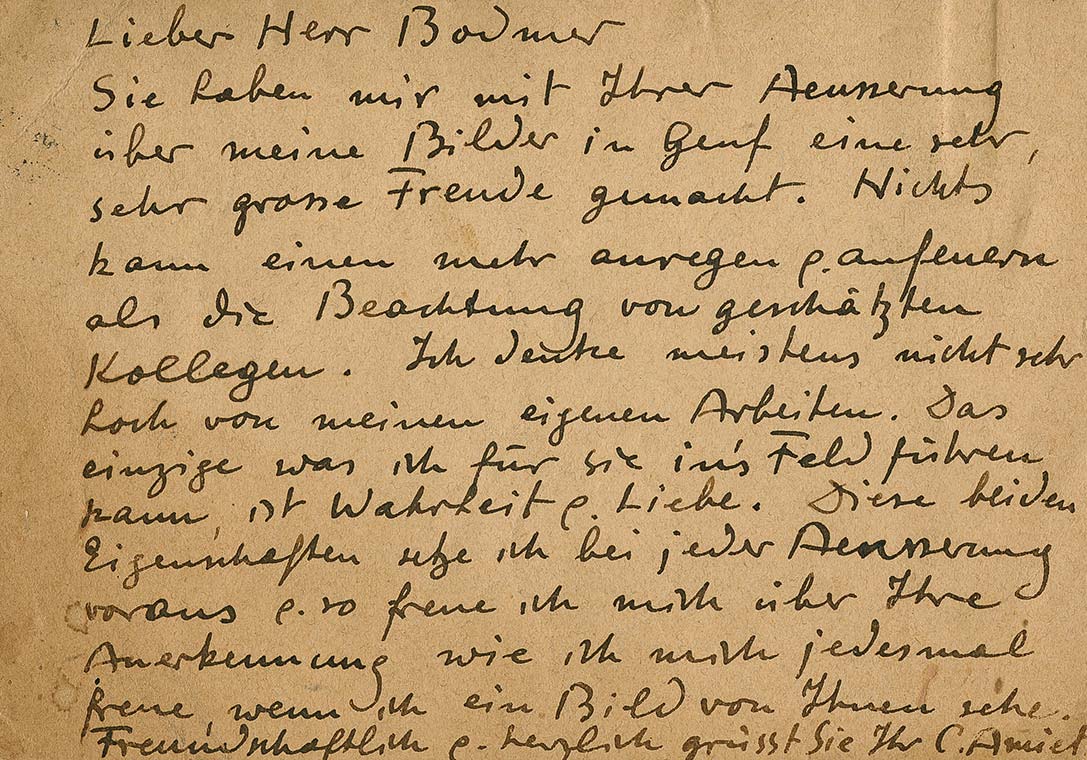 Lieber Herr Bodmer
Sie haben mir mit Ihrer Aeusserung
über meine Bilder in Genf eine sehr,
sehr grosse Freude gemacht. Nichts
kann einen mehr anregen & anfeuern
als die Beachtung von geschätzten
Kollegen. Ich denke meistens nicht sehr
hoch von meinen eigenen Arbeiten. Das
einzige was ich für sie in's Feld führen
kann, ist Wahrheit & Liebe. Diese beiden
Eigenschaften setze ich bei jeder Aeusserung
voraus & so freue ich mich über Ihre
Anerkennung wie ich mich jedesmal
freue, wenn ich ein Bild von Ihnen sehe.
Freundschaftlich & herzlich grüsst Sie Ihr C. Amiet